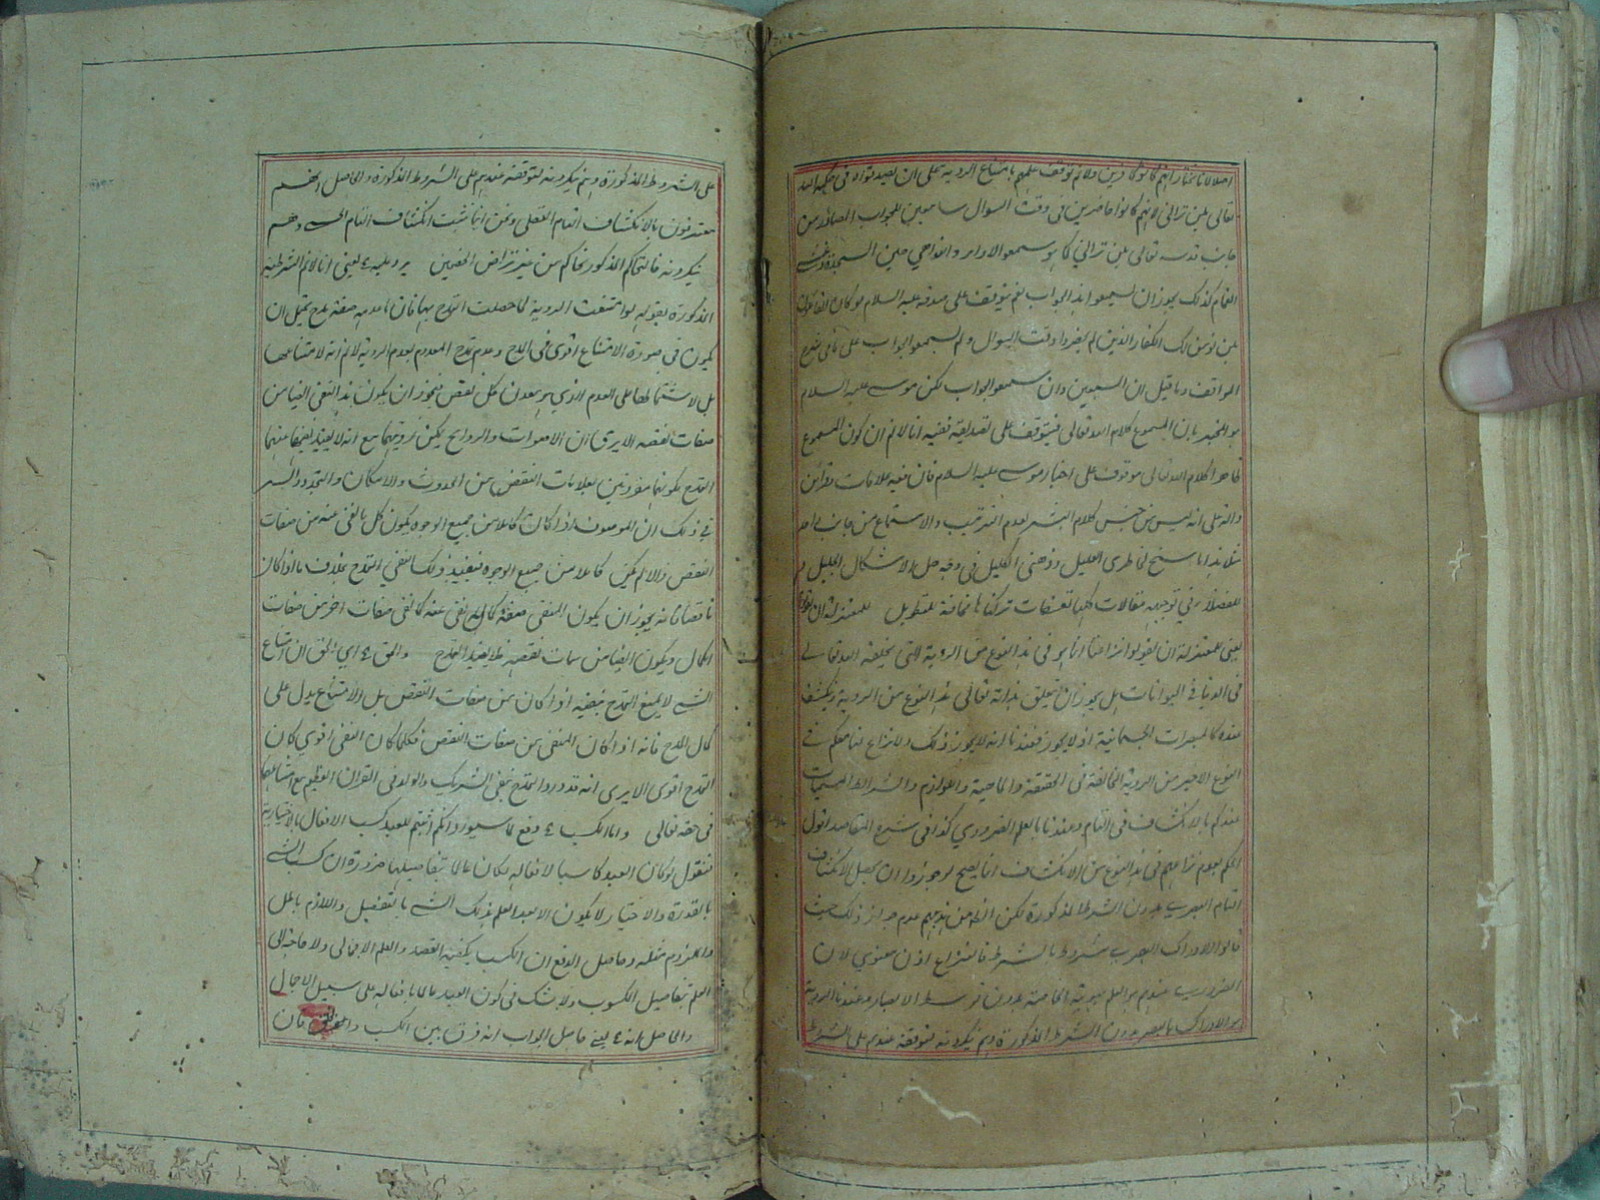 اصلا لانا نختار انهم كانوا كافرين ولا نم توقف علمهم بامتناع الروية على ان بعيد قوله في حكمه الله
تعالى بلن تراني لانهم كانوا حاضرين في وقت السوال سامعين للجواب الصادر من
جانب قدسه تعالى بلن تراني كما سمعوا الاوامر والنواهي حين السجدة وغشي
الغمام كذلك يجوز ان يسمعوا هذا الجواب نعم يتوقف على صدقه عليه السلام لو كان القائلون
لن نومن لك الكفار الذين لم يحضروا وقت السوال ولم يسمعوا الجواب على ما في شرح
المواقف وما قيل ان السبعين وان سمعوا الجواب لكن موسى عليه السلام
هو المخبر بان المسموع كلام الله تعالى فيتوقف على تصديقه ففيه انا لا نم ان كون المسموع
كلام الله تعالى موقوف على اخبار موسى عليه السلام فان فيه علامات وقرائن
دالة على انه ليس من جنس كلام البشر لعدم الترتيب والاستماع من جانب واحد
مثلا هذا ما سنح لخاطري العليل وذهني الكليل في وجه حل الاشكال الجليل
للفضلاء في توجيه مقالات كلها تعسفات تركناها مخافة للتطويل للمعتزلة ان يقولوا
يعني للمعتزلة ان يقولوا نزاعنا انما هو في هذا النوع من الروية التي يخلقه الله تعالى
في الدنيا في الحيوانات هل يجوز ان يتعلق بذاته تعالى هذا النوع من الروية وينكشف
عنده كالمبصرات الجسمانية او لا يجوز فعندنا انه لا يجوز ذلك ولا نزاع لنا معكم في
النوع الاخير من الروية المخالفة في الحقيقة والماهية واللوازم والشرائط المسميات
عندكم بالانكشاف التام وعندنا بالعلم الضروري كذا في شرح المقاصد اقول
الحكم بعدم نزاعهم في هذا النوع من الانكشاف انما يصح لو جوزوا ان يحصل الانكشاف
التام البصري بدون الشرط المذكورة لكن الظ من مذهبهم عدم جواز ذلك حيث
قالوا الادراك البصري مشروط بالشرط فالنزاع اذن معنوي لان
الضروري عندهم هو العلم بهوية الخاصة بدون توسط الابصار وعندنا الروية
هو الادراك بالبصر بدون الشرط المذكورة وهم ينكرونه لتوقفه عندهم على الشرط
على الشروط المذكورة وهم ينكرونه لتوقفه عندهم على الشروط المذكورة والحاصل انهم
معترفون بالانكشاف التام العقلي ونحن انما نثبت انكشاف التام الحسي وهم
ينكرونه فالتحاكم المذكور تحاكم من غير تراض الخصمين يرد عليه ع يعني انا لا نم الشرطية
المذكورة بقوله لو امتنعت الروية لما حصلت التمدح بها فان ما به صفة مدح يحتمل ان
يكون في صورة الامتناع اقوى في المدح وعدم تمدح المعدوم بعدم الروية لا نم انه لامتناعها
بل لاشتمالها على العدم الذي هو معدن كل نقص فيجوز ان يكون هذا النفي ايضا من
صفات نقصه الا يرى ان الاصوات والروايح يمكن رويتهما مع انه لا يفيد ايضا منهما
التمدح لكونهما مقرونين بعلامات النقص من الحدوث والامكان والتجدد والسر
في ذلك ان الموصوف اذا كان كاملا من جميع الوجوه يكون كل ما نفي عنه من صفات
النقص والا لم يكن كاملا من جميع الوجوه فيفيد ذلك النفي التمدح بخلاف ما اذا كان
ناقصا فانه يجوز ان يكون المنفي صفة كمال نفي عنه كما نفي صفات اخر من صفات
الكمال ويكون ايضا من سمات نقصه فلا يفيد التمدح والحق ع اي الحق ان امتناع
الشي لا يمنع التمدح بنفيه اذا كان من صفات النقص بل الامتناع يدل على
كمال المدح فانه اذا كان المنفي من صفات النقص فكلما كان النفي اقوى كان
التمدح اقوى الا يرى انه قد ورد التمدح بنفي الشريك والولد في القران العظيم مع امتناعهما
في حقه تعالى واما الكسب ع دفع لما سيورد انكم اثبتم للعبد كسب الافعال بالاختيار
فنقول لو كان العبد كاسبا لافعاله لكان عالما بتفاصيلها ضرورة ان كسب الشي
بالقدرة والاختيار لا يكون الا بعد العلم بذلك الشي بالتفصيل واللازم باطل
والملزوم مثله وحاصل الدفع ان الكسب يكفيه القصد والعلم الاجمالي ولا حاجة الى
العلم بتفاصيل المكسوب ولا شك في كون العبد عالما بافعاله على سبيل الاجمال
والحاصل انه ع يعني حاصل الجواب انه فرق بين الكسب والخلق فان